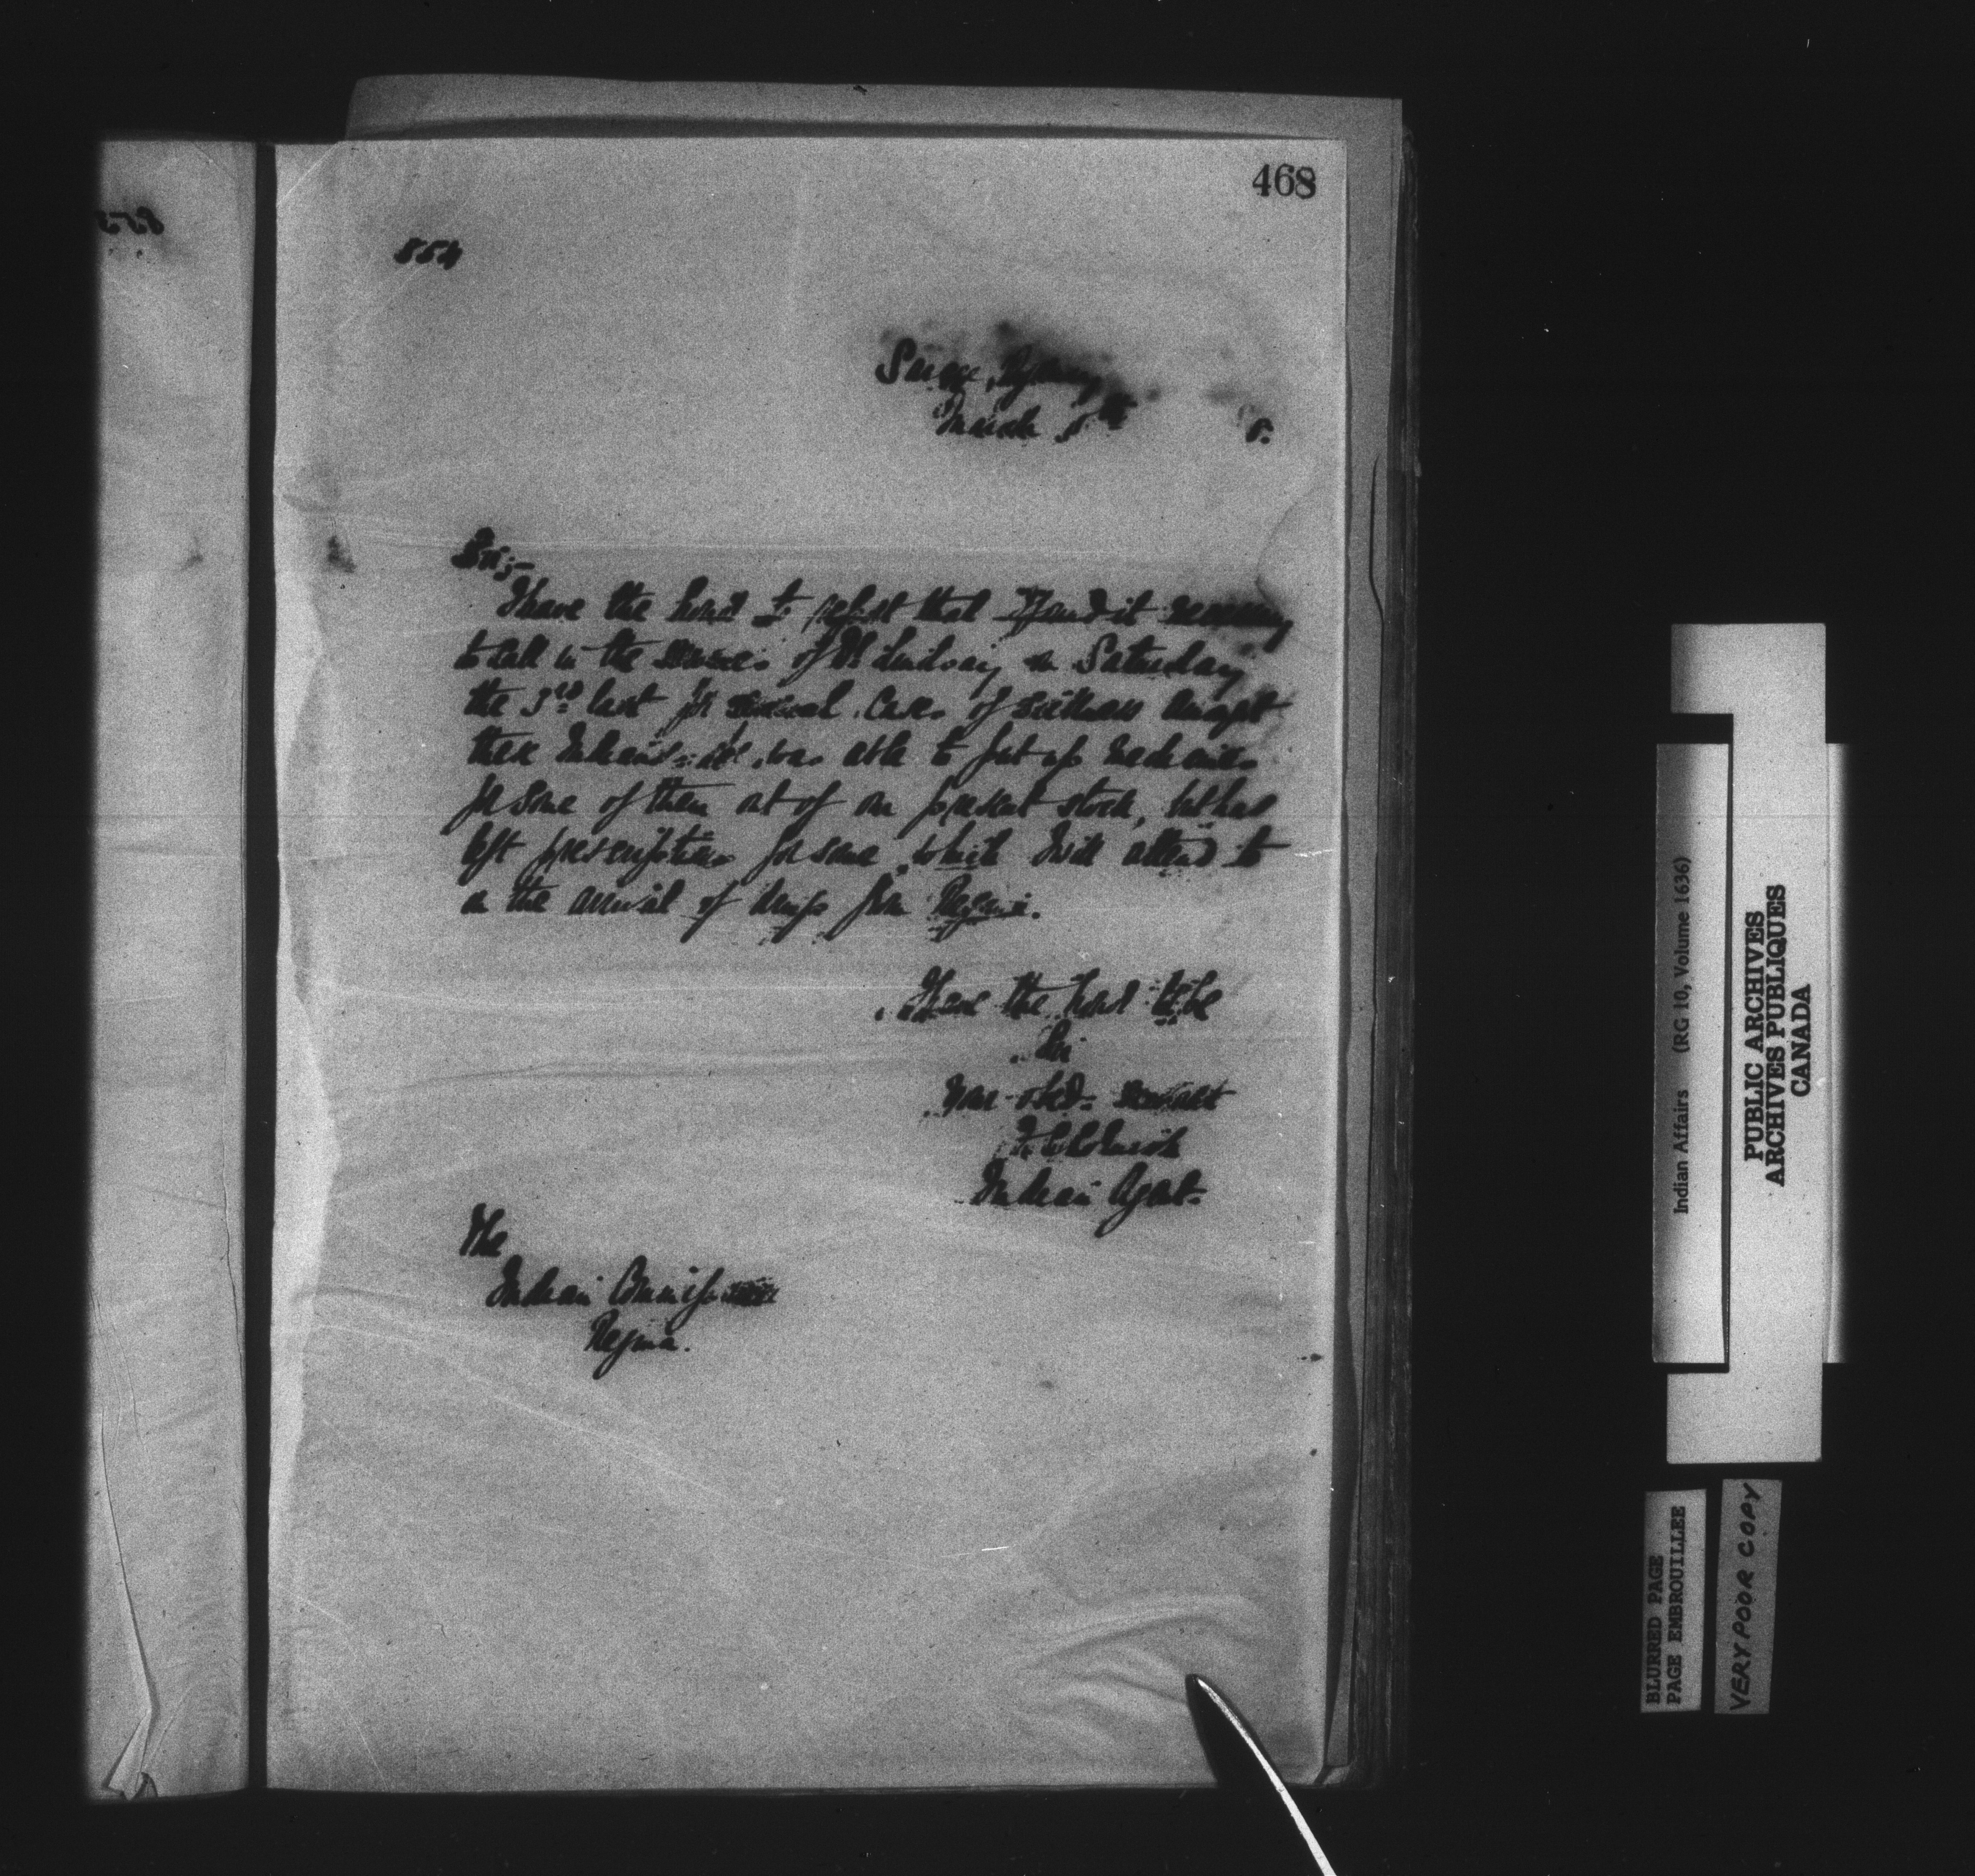 468
854
Sarcee Agency
March 5th 8.
Sir;-
I have the honor to report that I found it necessary
to call in the services of Dr Lindsay on Saturday
the 3rd last for several cases of sickness amongst
these Indians. He was able to put up medicines
for some of them out of our present stock, but has
left prescriptions for some which I will attend to
on the arrival of drugs from Regina.
I have the honor to be
Sir
Your obed. servant
Indian Agent
The
Indian Commissioner
Regina.
Indian Affairs (RG 10, Volume 1636)
PUBLIC ARCHIVES
ARCHIVES PUBLIQUES
CANADA
BLURRED PAGE
PAGE EMBROUILLEE
VERY POOR COPY